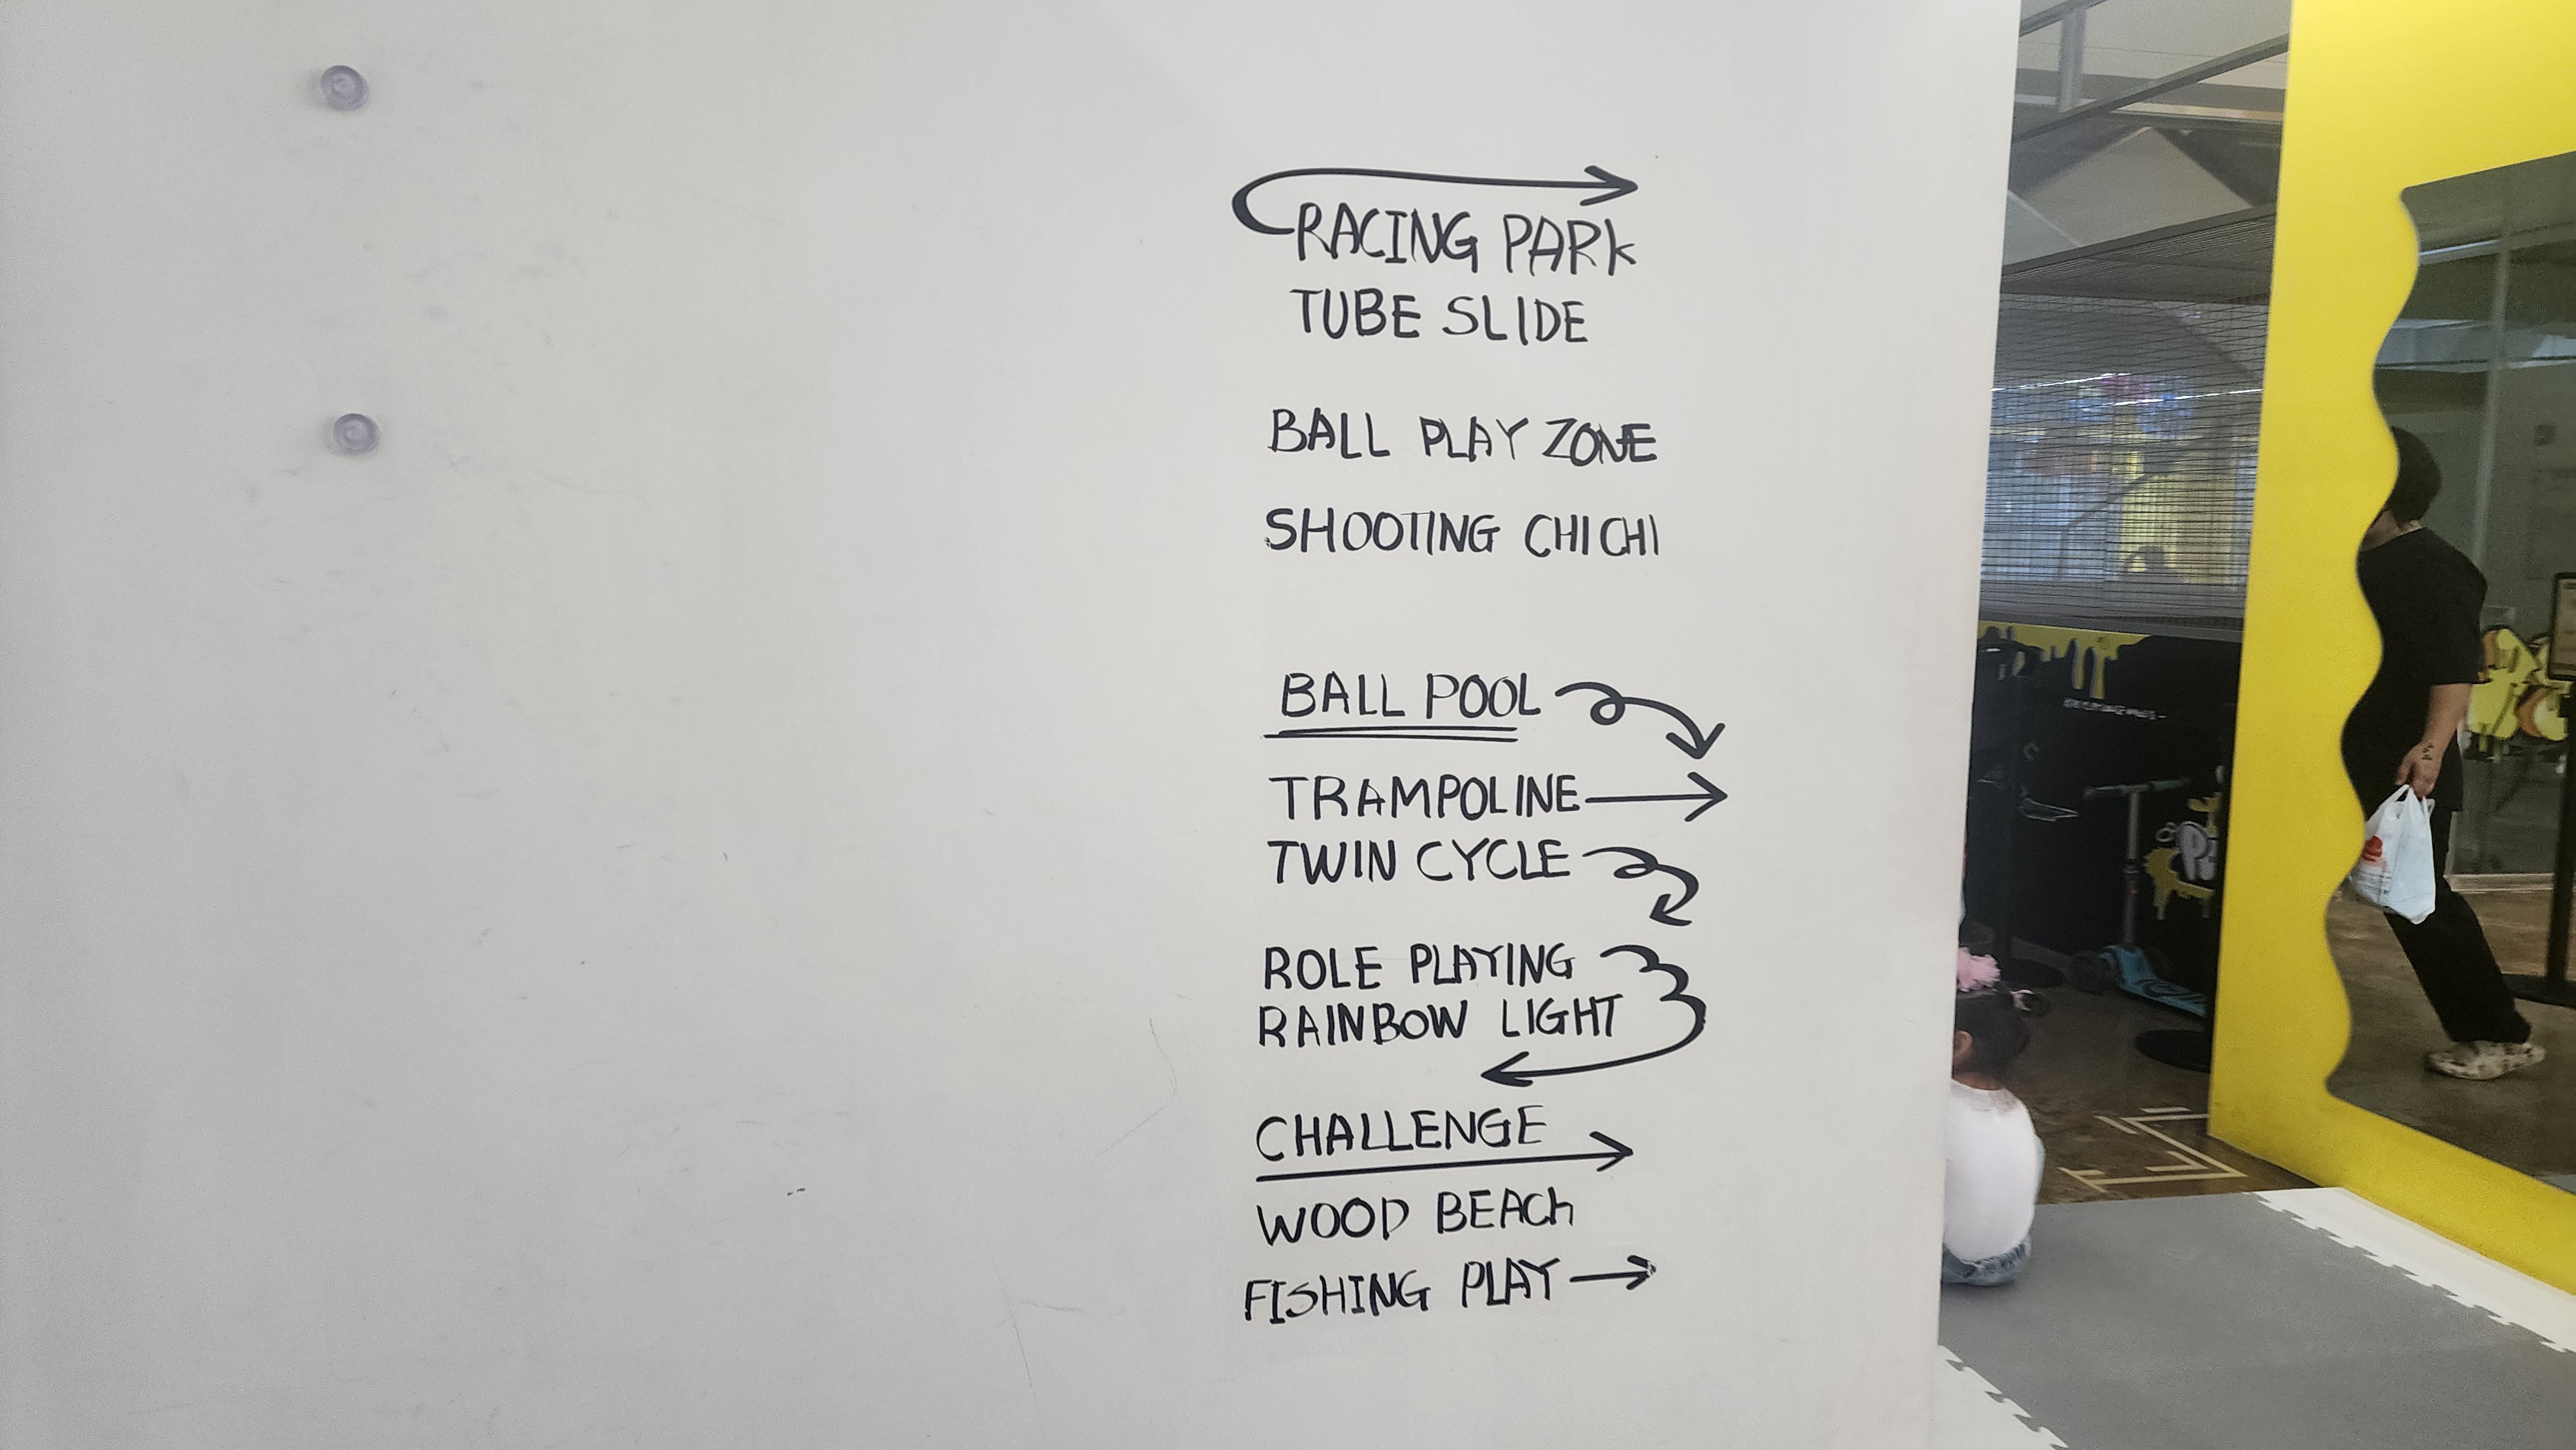 RACING PARK
TUBE SLIDE
BALL PLAY ZONE
SHOOTING CHICHI
BALL POOL
TRAMPOLINE
TWIN CYCLE
ROLE PLAYING
RAINBOW LIGHT
CHALLENGE
WOOD BEACh
FISHING PLAY